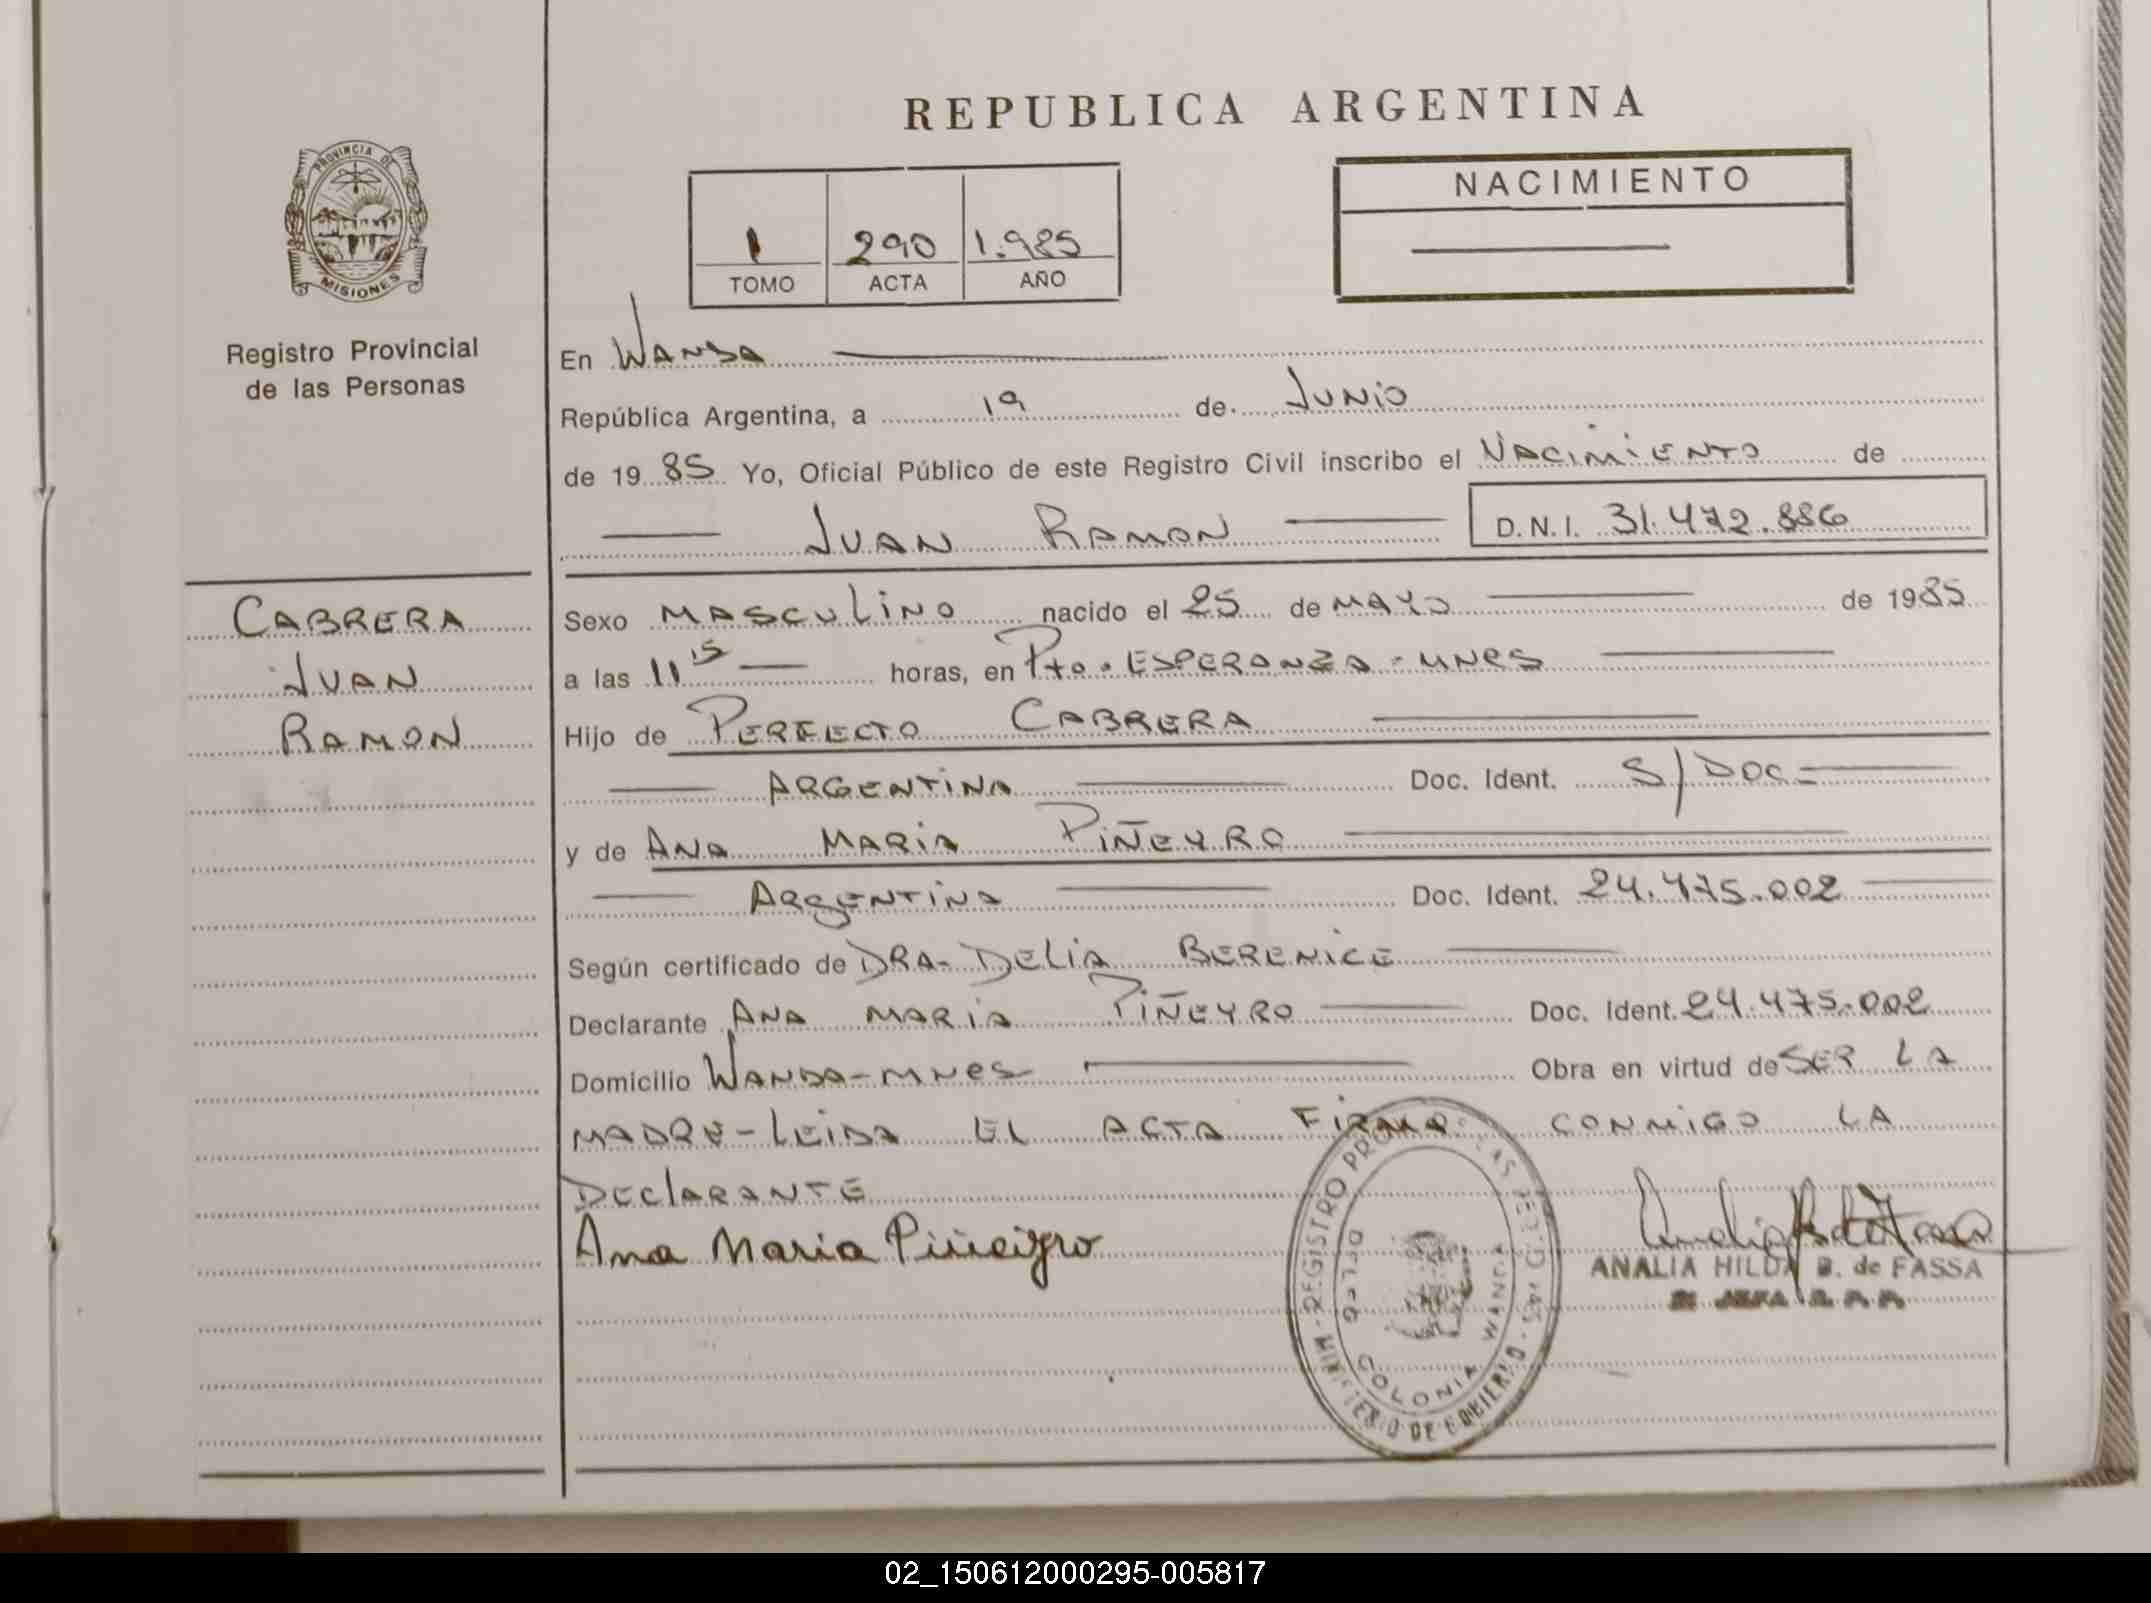 REPUBLICA ARGENTINA
PROVINCIA DE
MISIONES
Registro Provincial
de las Personas
1 290 1.985
TOMO ACTA AÑO
NACIMIENTO
En WANDA
República Argentina, a 19 de JUNIO
de 19 85 Yo, Oficial Público de este Registro Civil inscribo el NACIMIENTO de
JUAN RAMON D.N.I. 31.472.886
CABRERA
JUAN
RAMON
Sexo MASCULINO nacido el 25 de MAYO de 1985
a las 11 15 horas, en Pto. ESPERANZA - MNES
Hijo de PERFECTO CABRERA
ARGENTINA Doc. Ident. S/DOC=
y de ANA MARIA PIÑEYRO
ARGENTINA Doc. Ident. 24.475.002
Según certificado de DRA- DELIA BERENICE
Declarante ANA MARIA PIÑEYRO Doc. Ident. 24.475.002
Domicilio WANDA-MNES Obra en virtud de SER LA
MADRE-LEIDA EL ACTA FIRMA CONMIGO LA
DECLARANTE
Ana Maria Piñeiyro
ANALIA HILDA B. de FASSA
REGISTRO
COLONIA WANDA
02_150612000295-005817